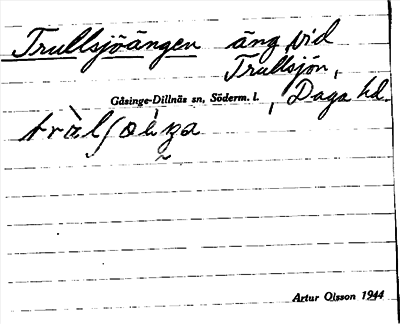 Trullsjöängen äng vid
Trullsjön,
Gåsinge-Dillnäs sn, Söderm. l. , Daga hd.
Artur Olsson 1944